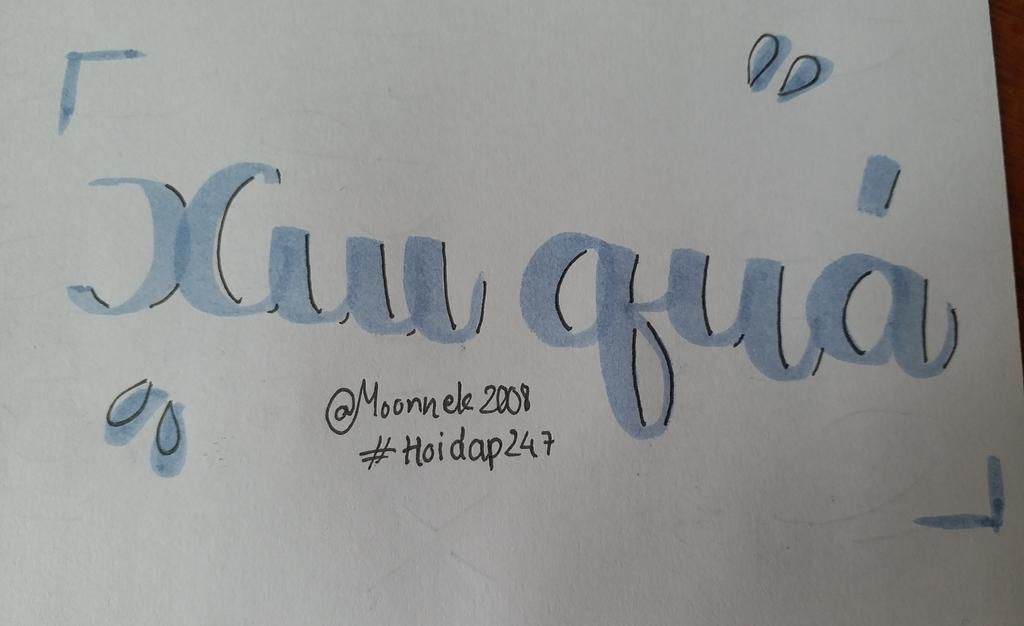 Xiu quá
@Moonnek2008
#Hoidap247